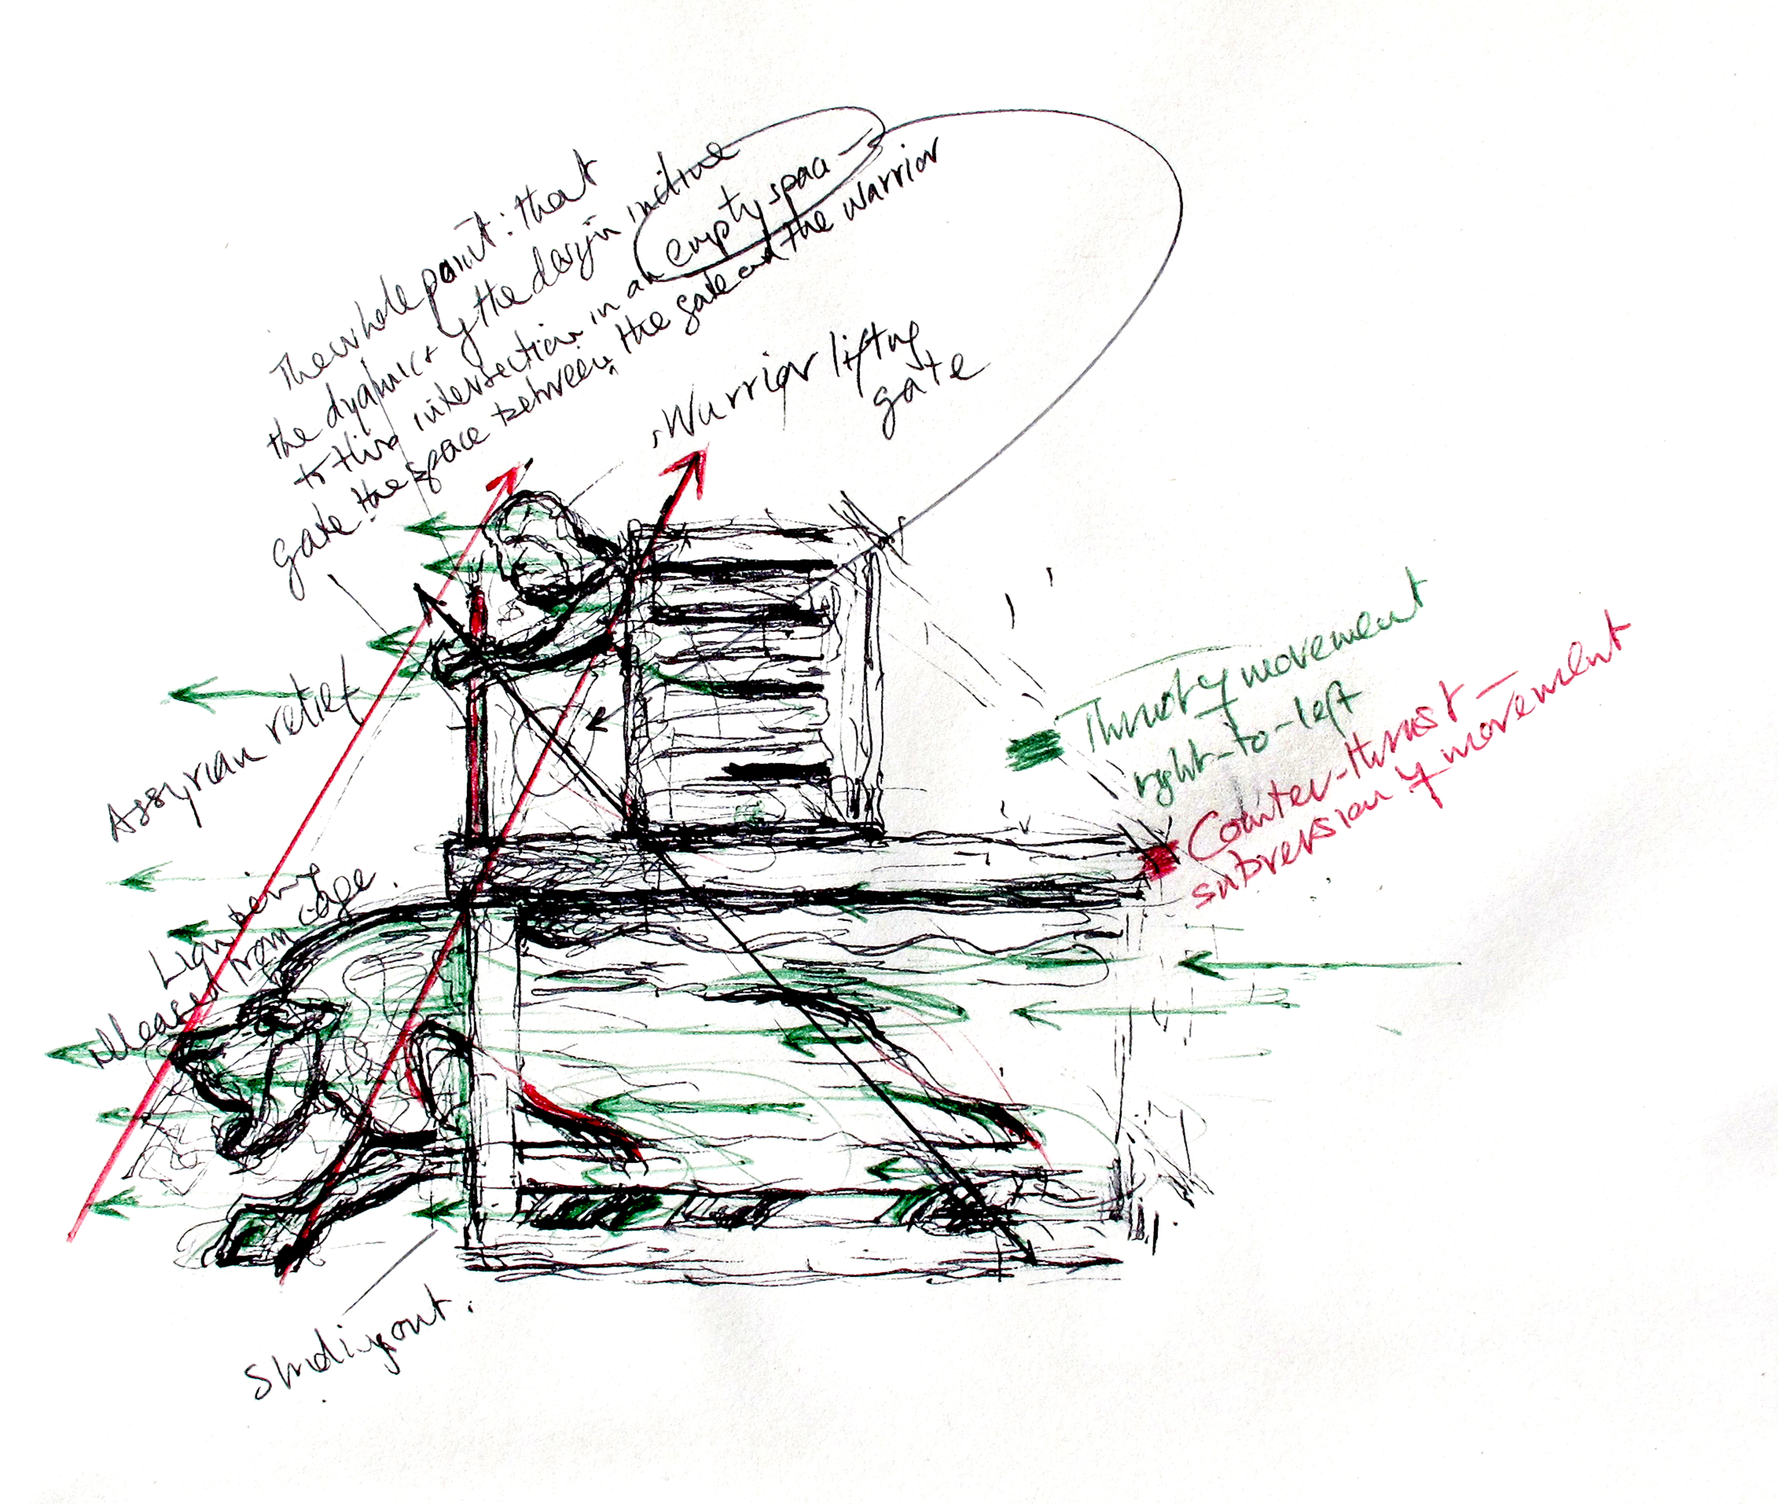 The whole point: that
the dynamics of the design incline
to this intersection in an empty space
gate. the space between the gate and the warrior
Warrior lifting
gate
Assyrian relief
Lion being
released from cage.
Thrust of movement
right-to-left
Counter-thrust –
subversion of movement